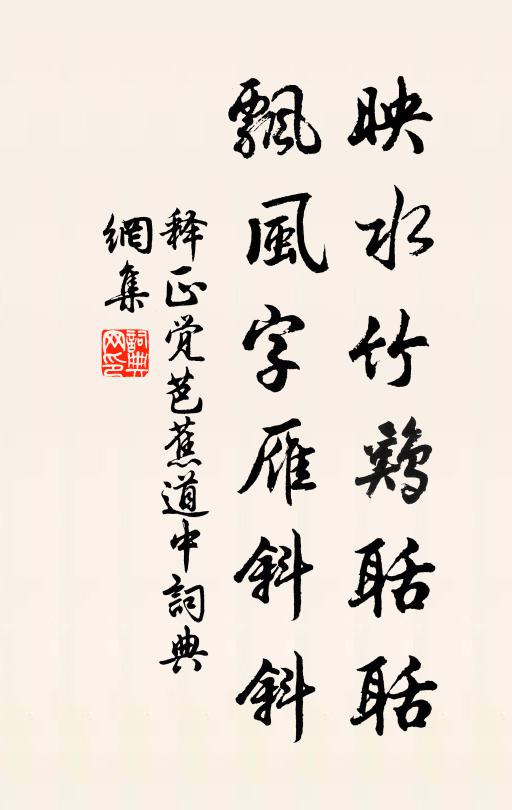 映水竹鷄聒聒
飄風字雁斜斜
释正觉芭蕉道中詞典
網集
詞典網印